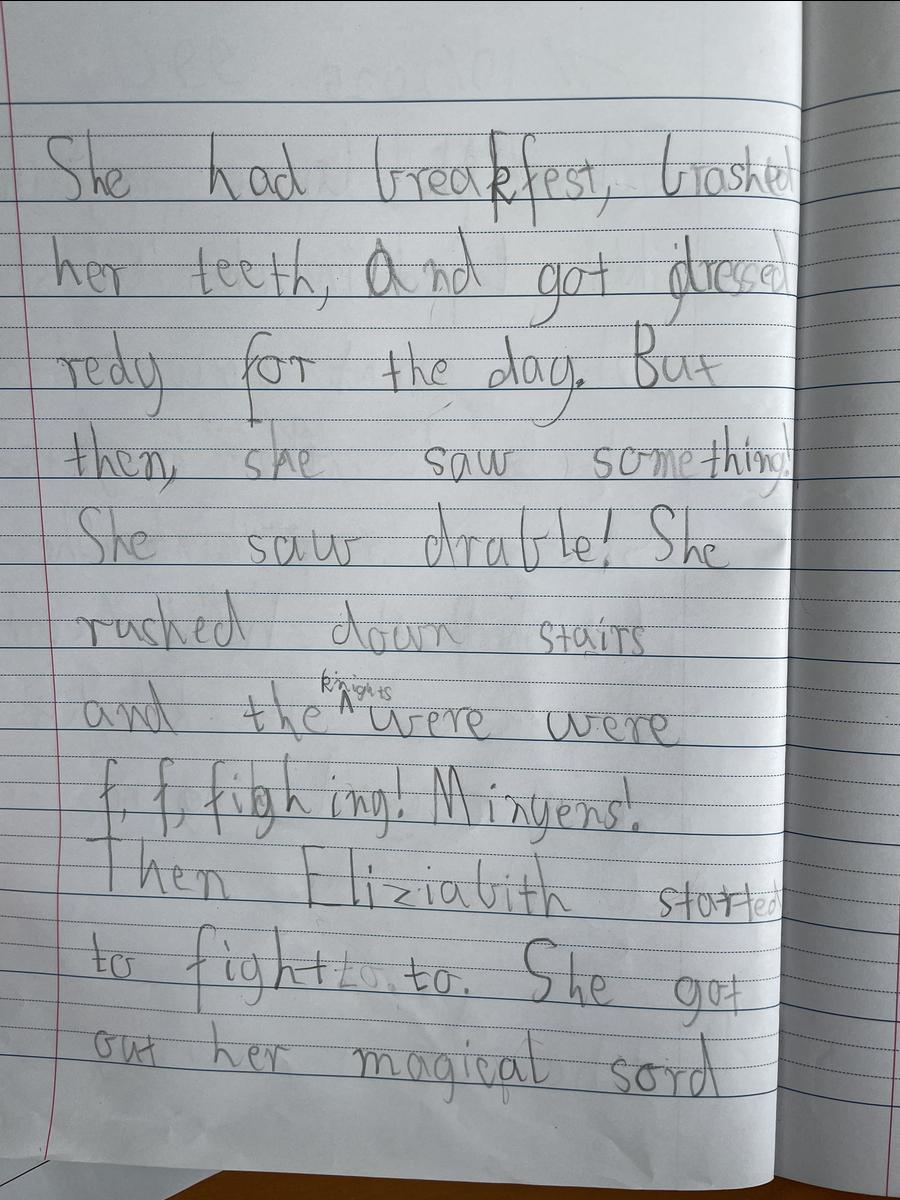 She had breakfest, brashed
her teeth, And got dressed
redy for the day. But
then, she saw something!
She saw drable! She
rushed down stairs
and the knights were were
f, f, fighing! Minyens!
Then Eliziabith started
to fight to. to. She got
out her magical sord